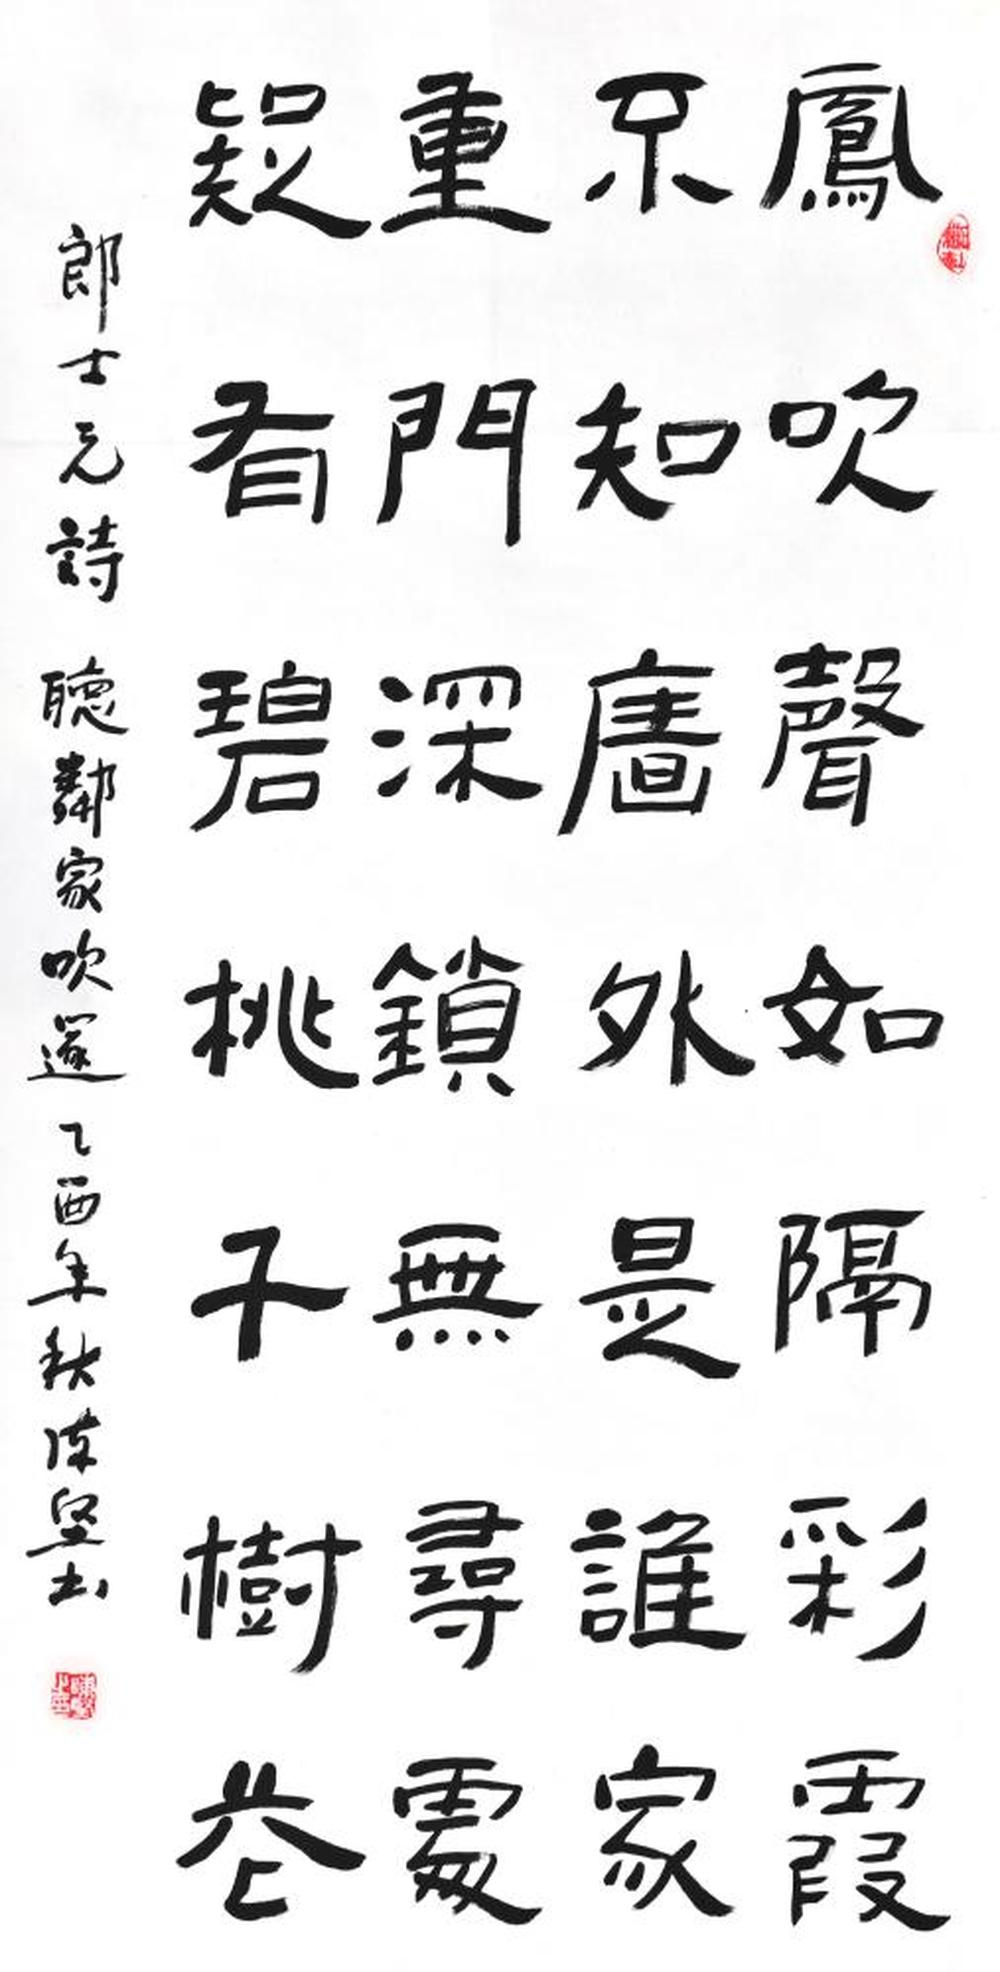 鳳吹聲如隔彩霞
不知廧外是誰家
重門深鎖無尋處
疑有碧桃千樹花
郎士元詩 聽鄰家吹 乙酉年秋陳堅书